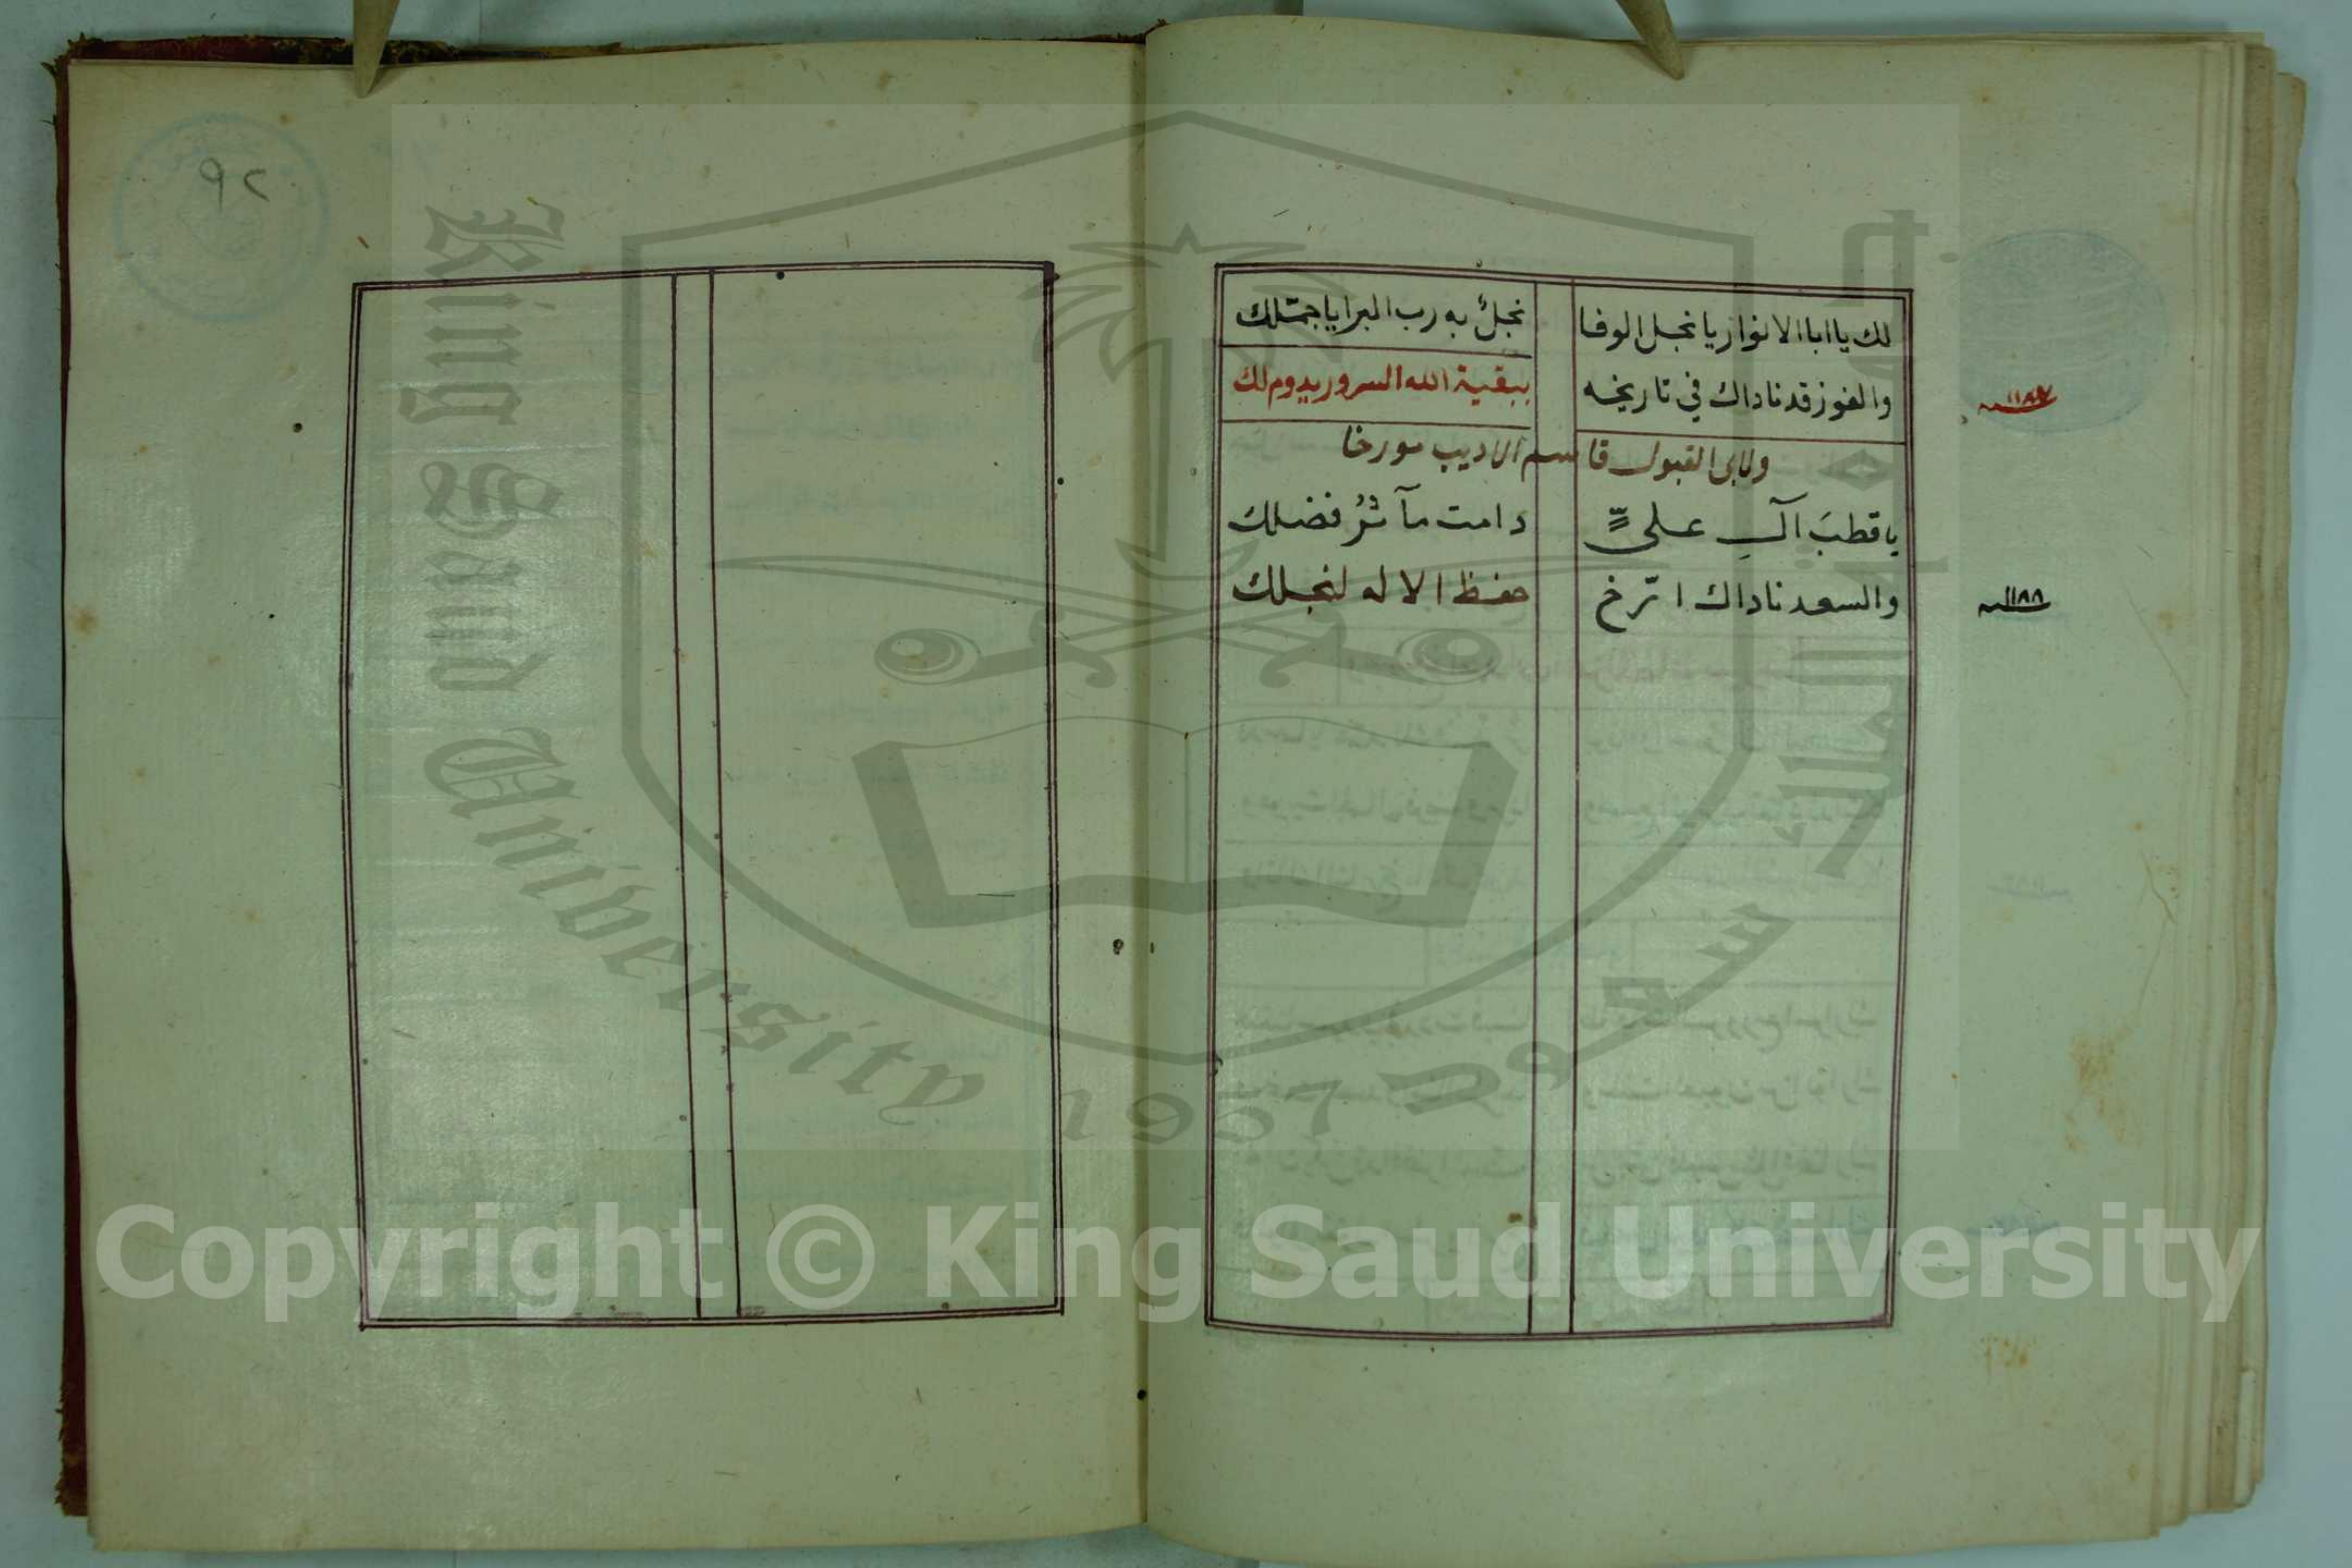 لك يا ابا الانوار يا نجل الوفا نجلٌ به رب البرايا جمّلك
والفوز قد ناداك في تاريخه ببقية الله السرور يدوم لك
سنة ١١٨٧
ولابى القبول قاسم الاديب مورخا
يا قطبَ آلِ علىٍّ دامت مآثرُ فضلك
والسعد ناداك ارّخ حفظ الاله لنجلك
سنة ١١٨٨
٩٢
King Saud University
1957
Copyright © King Saud University